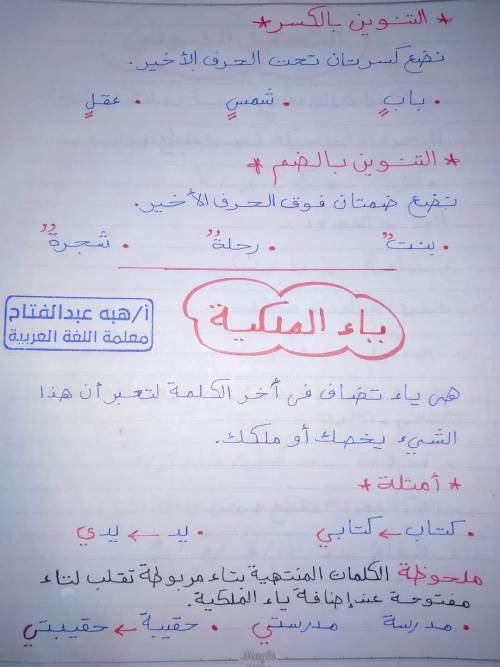 * التنوين بالكسر *
نضع كسرتان تحت الحرف الأخير.
• بابٍ • شمسٍ • عقلٍ
* التنوين بالضم *
نضع ضمتان فوق الحرف الأخير.
• بنتٌ • رحلةٌ • شجرةٌ
ياء الملكية
أ/هبه عبدالفتاح
معلمة اللغة العربية
هي ياء تضاف في أخر الكلمة لتعبر أن هذا
الشيء يخصك أو ملكك.
* أمثلة *
• كتاب ← كتابي • يد ← يدي
ملحوظة الكلمات المنتهية بتاء مربوطة تقلب لتاء
مفتوحة عند إضافة ياء الملكية.
• مدرسة مدرستي • حقيبة ← حقيبتي
Magic